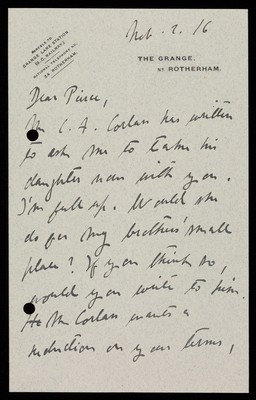 PARCELS TO
GRANGE LANE STATION
(G. C. RAILWAY.)
NATIONAL TELEPHONE NO.
54 ROTHERHAM.
Feb. 2. 16
THE GRANGE.
NR ROTHERHAM.
Dear Pierce,
Mr C. F. Corlas has written
to ask me to take his
daughter now with you.
I'm full up. Would she
do for my brothers' small
place? If you think so,
would you write to him.
If Mr Corlas wants a
reduction on your terms,